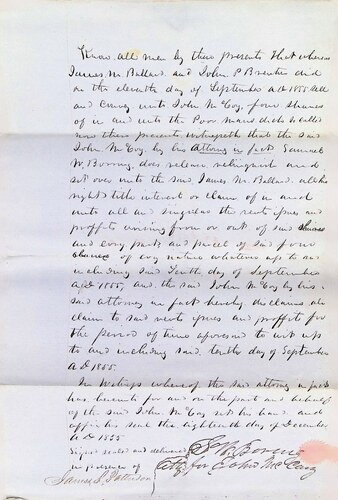 Know all men by these presents that whereas
James M. Ballard and John P Brenten did
on the eleventh day of September AD 1855 sell
and Convey unto John McCoy four shares
of in and unto the Poor mans ditch so called
now these presents witnesseth that the said
John McCoy by his Attorney in fact Samuel
W. Boring does release relinquish and
set over unto the said James M. Ballard all his
right title interest or claim of in and
unto all and singular the rents issues and
profits arising from or out of said shares
and every part and parcel of said four
shares of evry nature whatever up to and
including said Tenth day of September
AD 1855, and the said John McCoy by his
said attorney in fact hereby disclaims all
claim to said rents issues and profits for
the period of time aforesaid to wit up
to and including said tenth day of September
AD 1855.
In Witness whereof the said attorney in fact
has hereunto for and on the part and behalf
of the said John McCoy set his hand and
affix his seal the eighteenth day of December
AD 1855
Signed sealed and delivered S W Boring
in presence of Atty for John McCoy
James S.